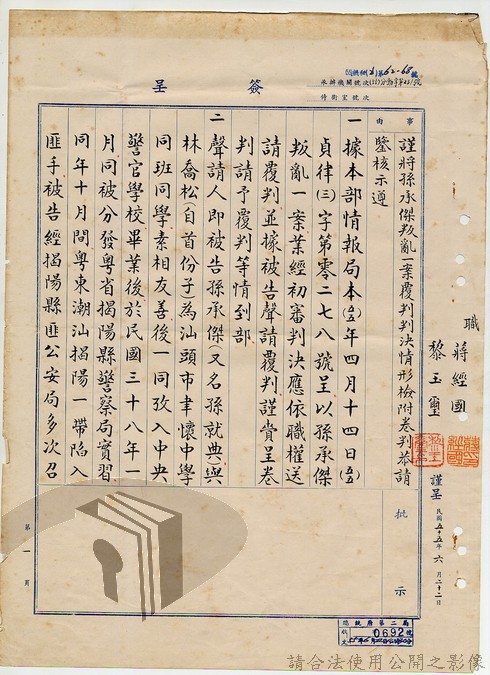 簽呈
承辦機關號次(55)
侍衛室號次
事由
謹將孫承傑叛亂一案覆判判決情形檢附卷判恭請
鑒核示遵
職 蔣經國
黎玉璽
謹呈 民國五十五年六月二十二日
批示
一 據本部情報局本(55)年四月十四日(55)
貞律(三)字第零二七八號呈以孫承傑
叛亂一案業經初審判決應依職權送
請覆判並據被告聲請覆判謹賫呈卷
判請予覆判等情到部
二 聲請人即被告孫承傑(又名孫就典)與
林喬松(自首份子)為汕頭市聿懷中學
同班同學素相友善後一同攷入中央
警官學校畢業後於民國三十八年一
月同被分發粤省揭陽縣警察局實習
同年十月間粤東潮汕揭陽一帶陷入
匪手被告經揭陽縣匪公安局多次召
第一頁
總統府第二局
收文 0692號
請合法使用公開之影像